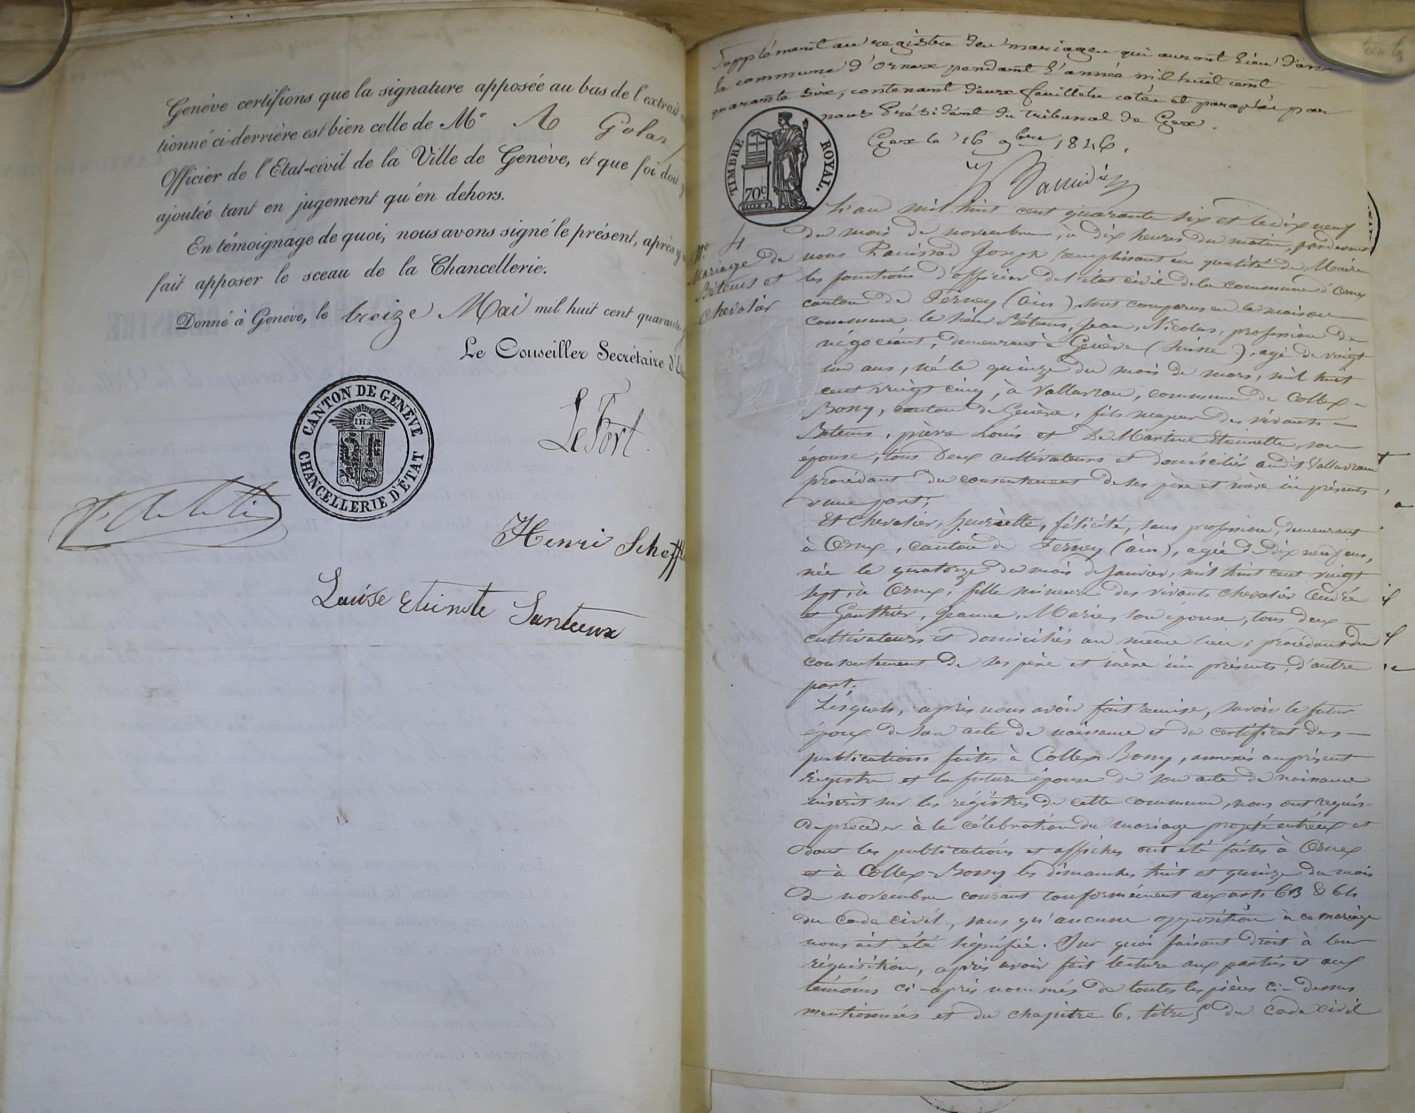 Genève certifions que la signature apposée au bas de l'extrait
tionné ci-derrière est bien celle de Mr A Golay
Officier de l'Etat-civil de la Ville de Genève, et que foi doit
ajoutée tant en jugement qu'en dehors.
En témoignage de quoi, nous avons signé le présent, après
fait apposer le sceau de la Chancellerie.
Donné à Genève, le treize Mai mil huit cent quarante
Le Conseiller Secrétaire d'E
CANTON DE GENÈVE
IHS
CHANCELLERIE D'ÉTAT
LeFort
Henri Scheff
Louise
Supplément au registre des mariages qui auront lieu dans
la commune d'Ornex pendant l'année mil huit cent
quarante six, contenant deux feuillets cotés et paraphés par
nous Président du tribunal de Gex.
Gex le 16 9bre 1846.
TIMBRE ROYAL.
70c
No 4
Mariage de
Béteus et
Chevalier
L'an mil huit cent quarante six et le dix neuf
du mois de novembre, à dix heures du matin, pardevant
nous Joseph remplissant en qualité de Maire
les fonctions d'officier de l'état civil de la commune d'Ornex
canton de Ferney (Ain), sont comparus en la maison
commune le sieur Béteus, Jean, Nicolas, profession de
négociant, demeurant à Genève (Suisse), agé de vingt
un ans, né le quinze du mois de mars, mil huit
cent vingt cinq, à Vallavran, commune de Collex-
Bossy, canton de Genève, fils majeur des vivants
Béteus, pierre Louis et De Martine Etiennette, son
épouse, tous deux cultivateurs et domiciliés audit Vallavran
procédant du consentement de ses père et mère ici présents
d'une part;
Et Chevalier, henriette, félicité, sans profession, demeurant
à Ornex, canton de Ferney (ain), agée de dix neuf ans,
née le quatorze du mois de Janvier, mil huit cent vingt
sept, à Ornex, fille mineure des vivants Chevalier André
et Gauthier, Jeanne, Marie, son épouse, tous deux
cultivateurs et domiciliés au même lieu, procédant du
consentement de ses père et mère ici présents, d'autre
part.
Lesquels, après nous avoir fait remise, savoir le futur
époux de son acte de naissance et du certificat des
publications faites à Collex Bossy, annexés au présent
registre et la future épouse de son acte de naissance
inscrit sur les régistres de cette commune, nous ont requis
de procéder à la célébration du mariage projeté entr'eux et
dont les publications et affiches ont été faites à Ornex
et à Collex-Bossy les dimanches huit et quinze du mois
de novembre courant conformément aux arts 63 & 64
du Code civil, sans qu'aucune opposition à ce mariage
nous ait été signifiée. Sur quoi faisant droit à leur
réquisition, après avoir fait lecture aux parties et aux
témoins ci-après nommés de toutes les pièces ci-dessus
mentionnées et du chapitre 6. titre 5 du Code civil